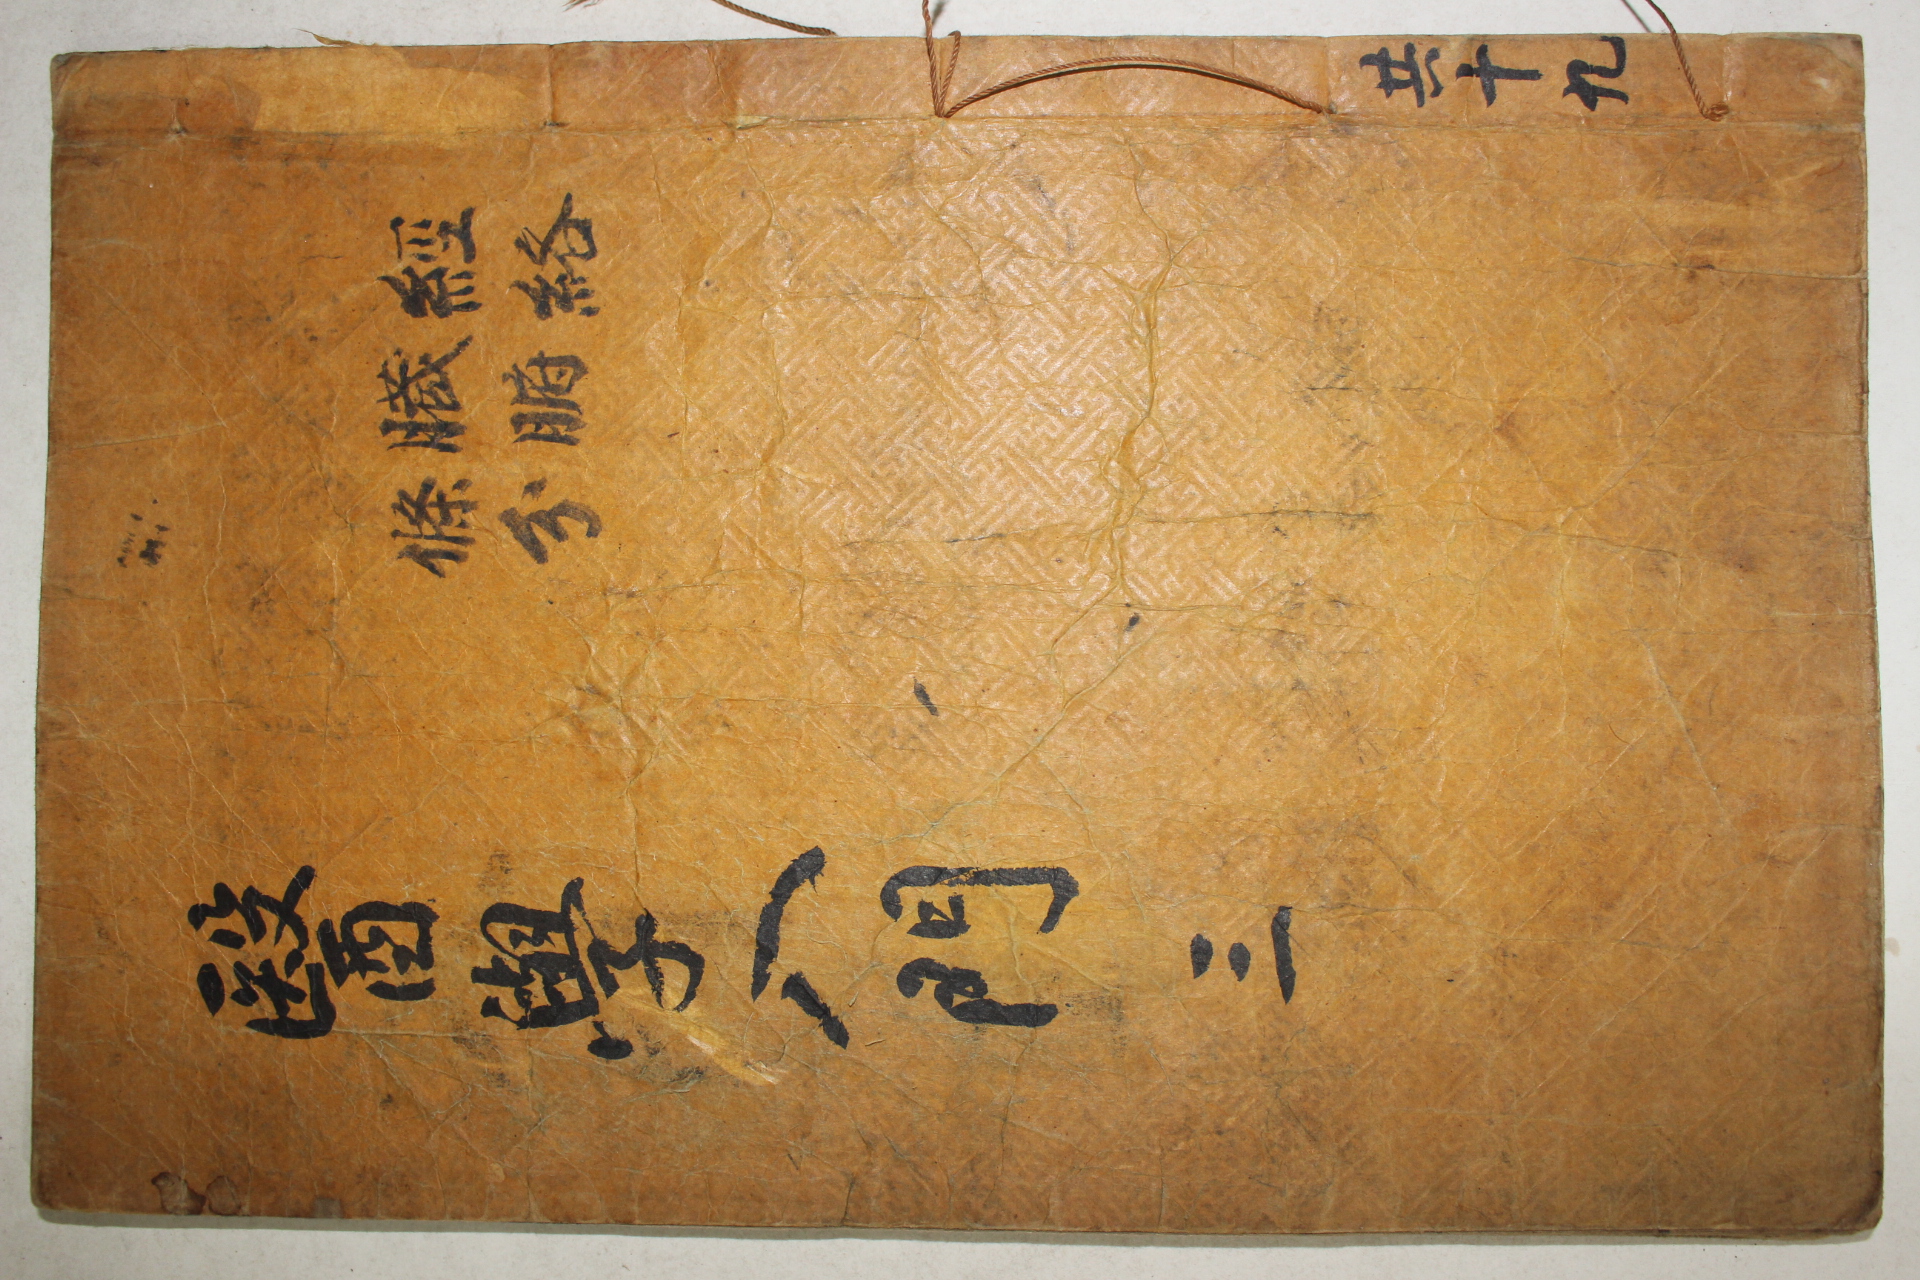 共十九
經絡
臟腑
條分
醫學入門 三